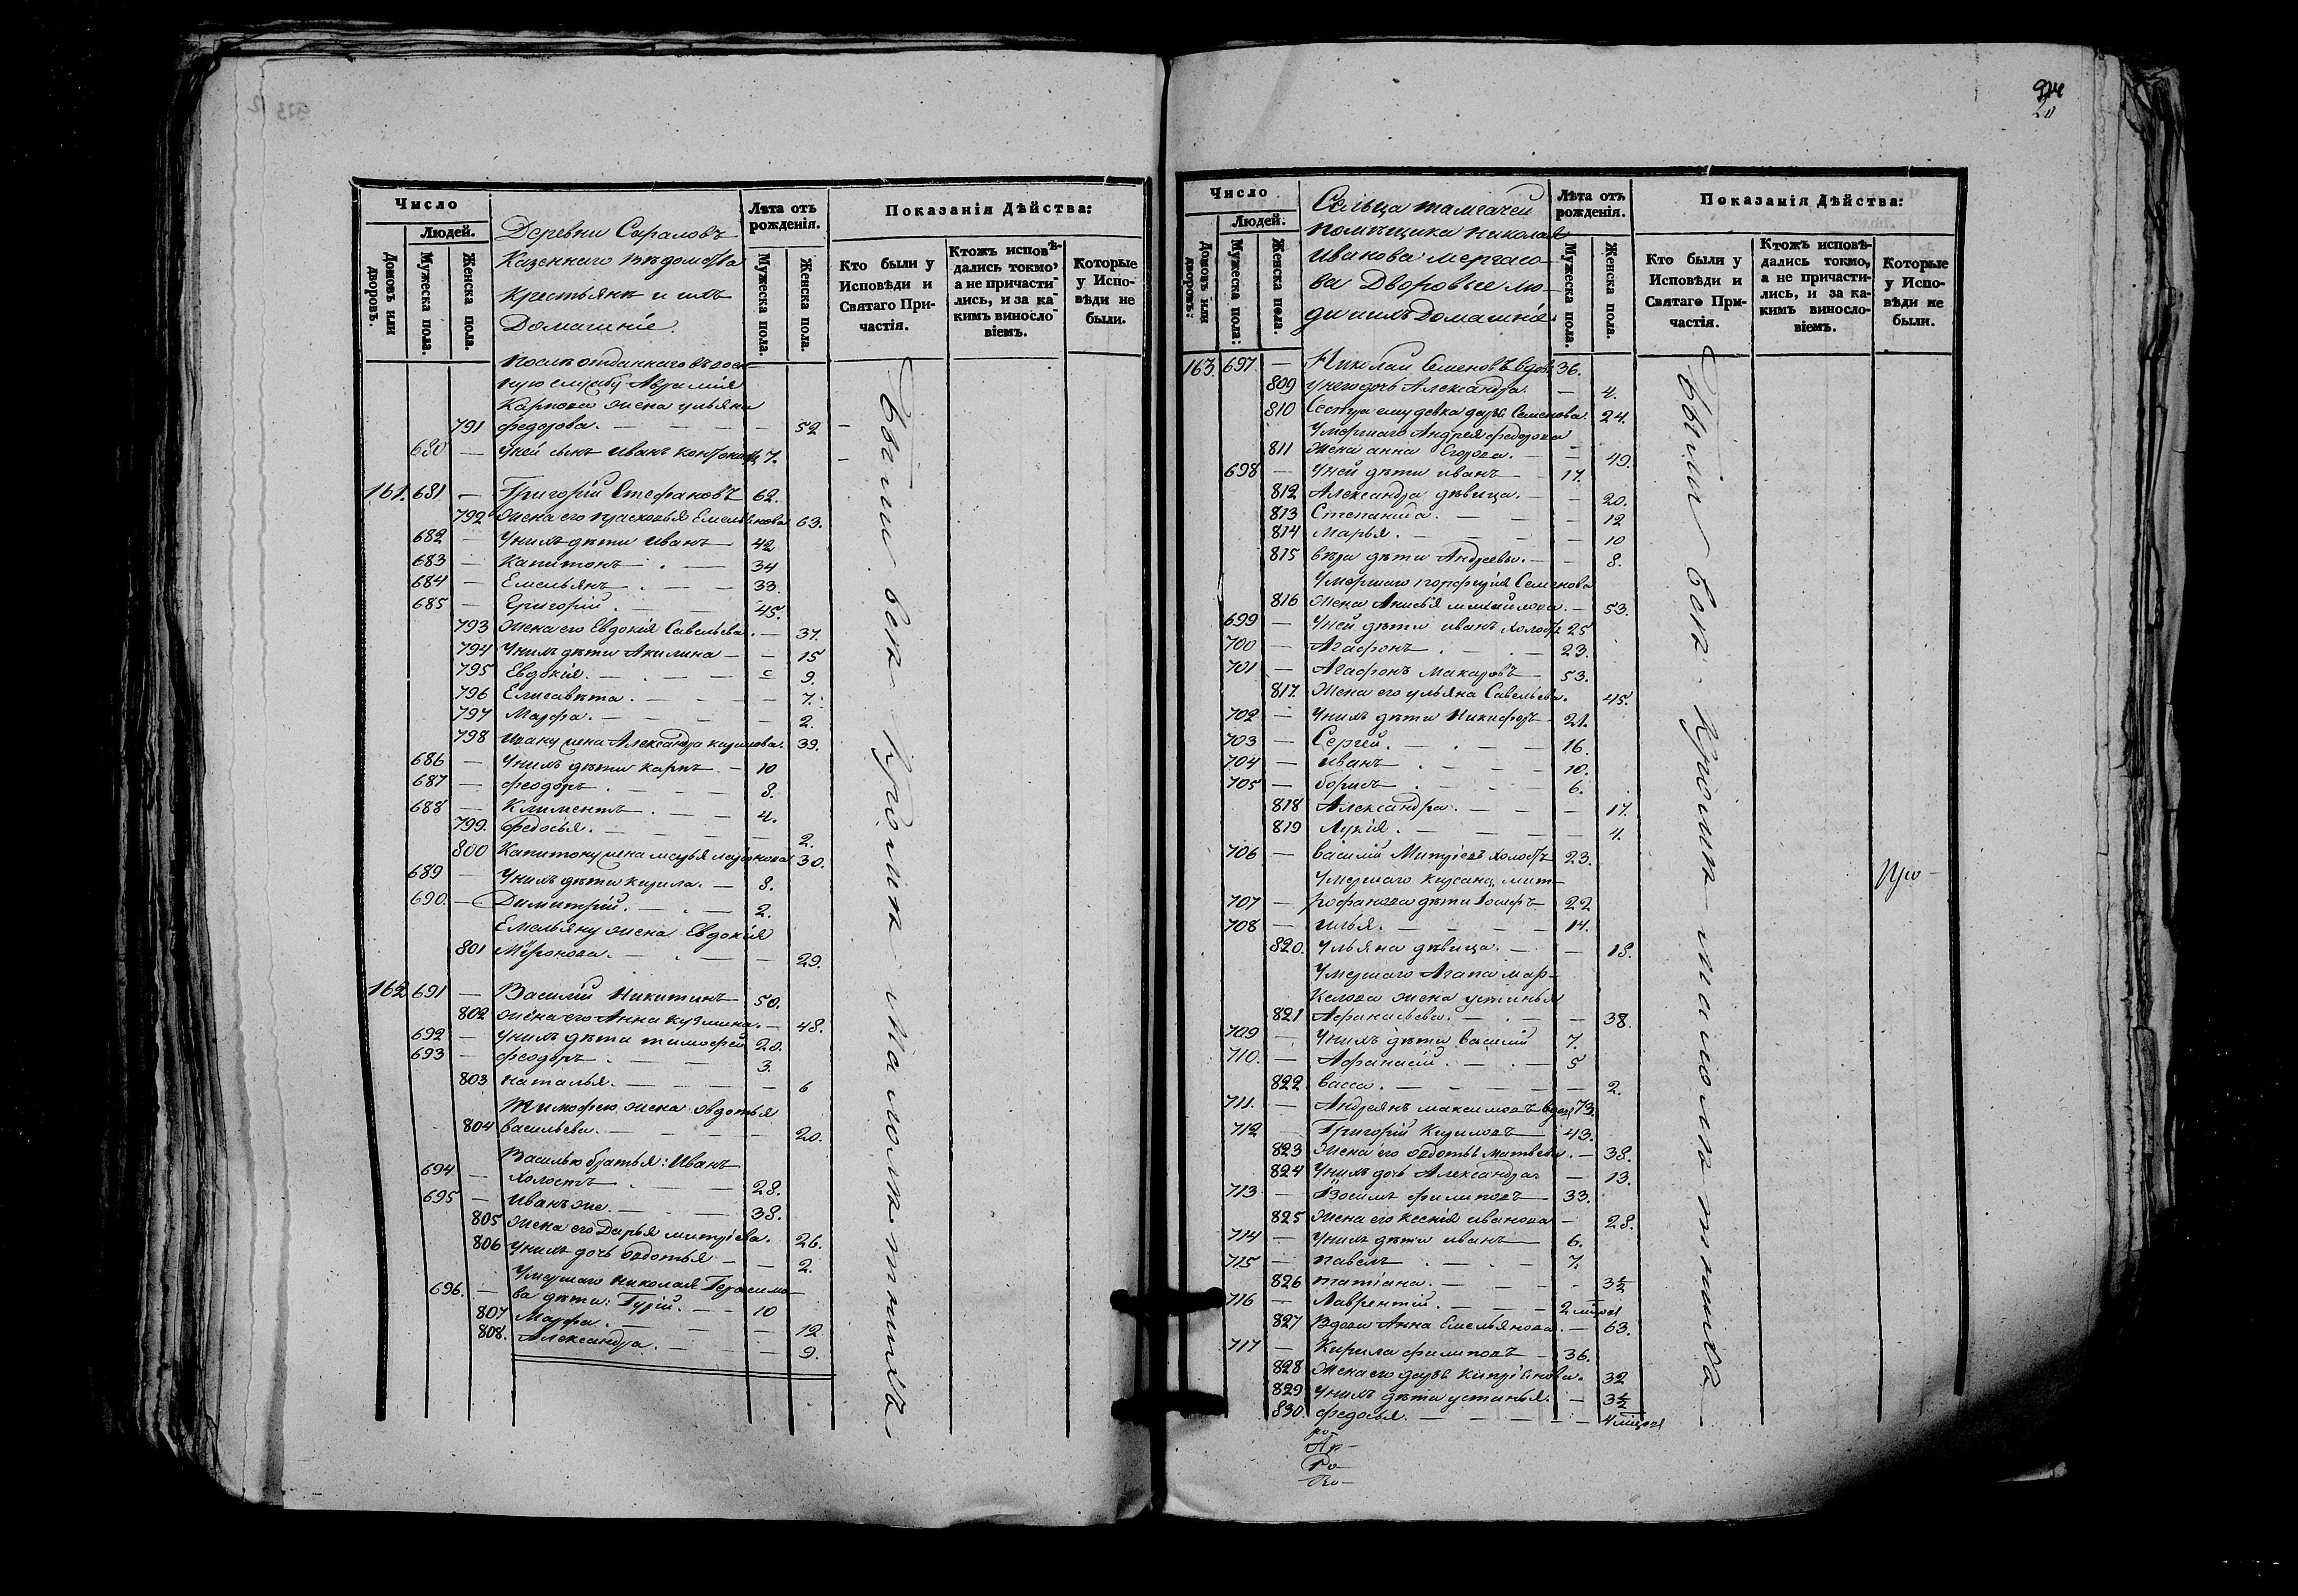 Число
Людей.
Домовъ или дворовъ.
Мужеска пола.
Женска пола.
Деревни Сараловъ
Казеннаго вѣдомства
Крестьянѣ и ихъ
Домашніе.
Лѣта отъ рожденія.
Мужеска пола.
Женска пола.
Показанія Дѣйства:
Кто были у Исповѣди и Святаго Причастія.
Ктожъ исповѣдались токмо, а не причастились, и за какимъ винословіемъ.
Которые у Исповѣди не были.
послѣ отданнаго въ воен-
ную службу Аврамія
Карпова жена ульяна
791 федорова. — 52
680 — у ней сынъ иванъ 7.
161. 681 — Григорій Стефановъ 62.
792 жена его прасковья Емельянова 63.
682 — у нихъ дѣти иванъ — 42
683 — Капитонъ — 34
684 — Емельянъ — 33.
685 — Григорій — 45.
793 жена его Евдокія Савельева. — 37.
794 у нихъ дѣти Акилина — 15
795 Евдокія. — 9.
796 Елисавѣта. — 7.
797 Марфа. — 2.
798 ивану жена Александра кирилова. 39.
686 — у нихъ дѣти карпъ — 10
687 — феодоръ — 8.
688 — Климентъ — 4.
799. федосья. — 2.
800 Капитону жена марья 30.
689 — у нихъ дѣти кирила. — 8.
690. — Димитрій. — 2.
Емельяну жена Евдокія
801 Миронова. — 29.
162 691 — Василій Никитинъ — 50.
802 жена его Анна кузмина. — 48.
692 — у нихъ дѣти тимофей 20.
693 — феодоръ — 3.
803 наталья. — 6
Тимофею жена овдотья
804 васильева. — 20.
Василью братья: Иванъ
694 — холостъ — 28.
695 — иванъ же. — 38.
805 жена его Дарья митріева. 26.
806 у нихъ дочь овдотья — 2.
Умершаго николая Герасимо-
696. — ва дѣти: Гурій. — 10
807 Марфа. — 12
808. Александра. — 9.
были всѣ кромѣ малолѣтныхъ
924
20
Число
Людей.
Домовъ или дворовъ:
Мужеска пола:
Женска пола.
Сельца тамгачей
помѣщика николая
Иванова мергасо-
ва Дворовые лю-
ди и ихъ Домашніе
Лѣта отъ рожденія.
Мужеска пола.
Женска пола.
Показанія Дѣйства:
Кто были у Исповѣди и Святаго Причастія.
Ктожъ исповѣдались токмо, а не причастились, и за какимъ винословіемъ.
Которые у Исповѣди не были.
163. 697 — Николай Семеновъ вдовъ 36.
809 у него дочь Александра. — 4.
810 Сестра ему девка дарья Семенова. 24.
Умершаго Андрея федорова
811 жена анна Егорова. — 49.
698 — у ней дѣти иванъ — 17.
812 Александра дѣвица. — 20.
813 Степанида. — 12
814 Марья. — 10
815 вѣра дѣти Андреевы. — 8.
Умершаго порфирія Семенова
816 жена Анисья михайлова. — 53.
699 — у ней дѣти иванъ холостъ 25
700 — Агафонъ — 23.
701 — Агафонъ Макаровъ — 53.
817. жена его ульяна Савельева. 45.
702 — у нихъ дѣти Никифоръ 21.
703 — Сергей. — 16.
704 — иванъ — 10.
705 — борисъ — 6.
818 Александра. — 17.
819 Лукія. — 4.
706 — василій Митріевъ холостъ 23.
Умершаго кирсана мит-
707 — рофанова дѣти Іосифъ — 22
708 — илья. — 14.
820. Ульяна дѣвица. — 18.
Умершаго Агапа мар-
келова жена устинья
821 Афанасьева. — 38.
709 — у нихъ дѣти василій 7.
710. — Афанасій. — 5
822 васса. — 2.
711. — Андреянъ максимовъ вдовъ 73.
712 Григорій Кириловъ — 43.
823 жена его овдотья матвеева. — 38.
824 у нихъ дочь Александра. — 13.
713 — Зосимъ филиповъ — 33.
825 жена его ксенія иванова — 28.
714 — у нихъ дѣти иванъ — 6.
715 — павелъ — 7.
826 татіана. — 3½
716 — Лаврентій. — 2 мѣсяц
827 Вдова Анна Емельянова. — 63.
717 — Кирила филиповъ — 36.
828 жена его дарья кипріянова. 32
829 у нихъ дѣти устинья. — 3½
830. федосья. — 4 мѣсяц
были всѣ кромѣ малолѣтныхъ